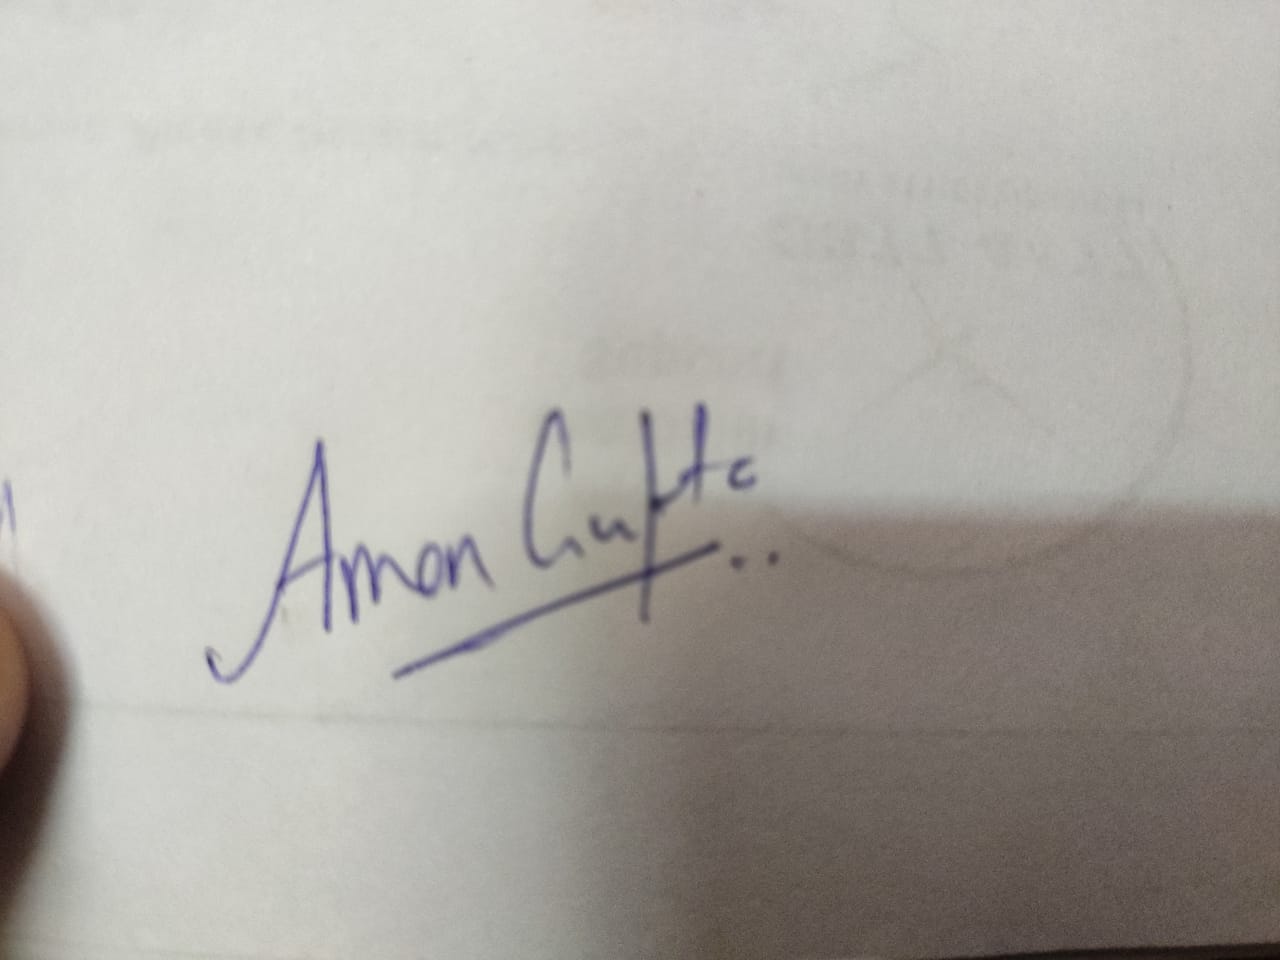 Aman Gupta